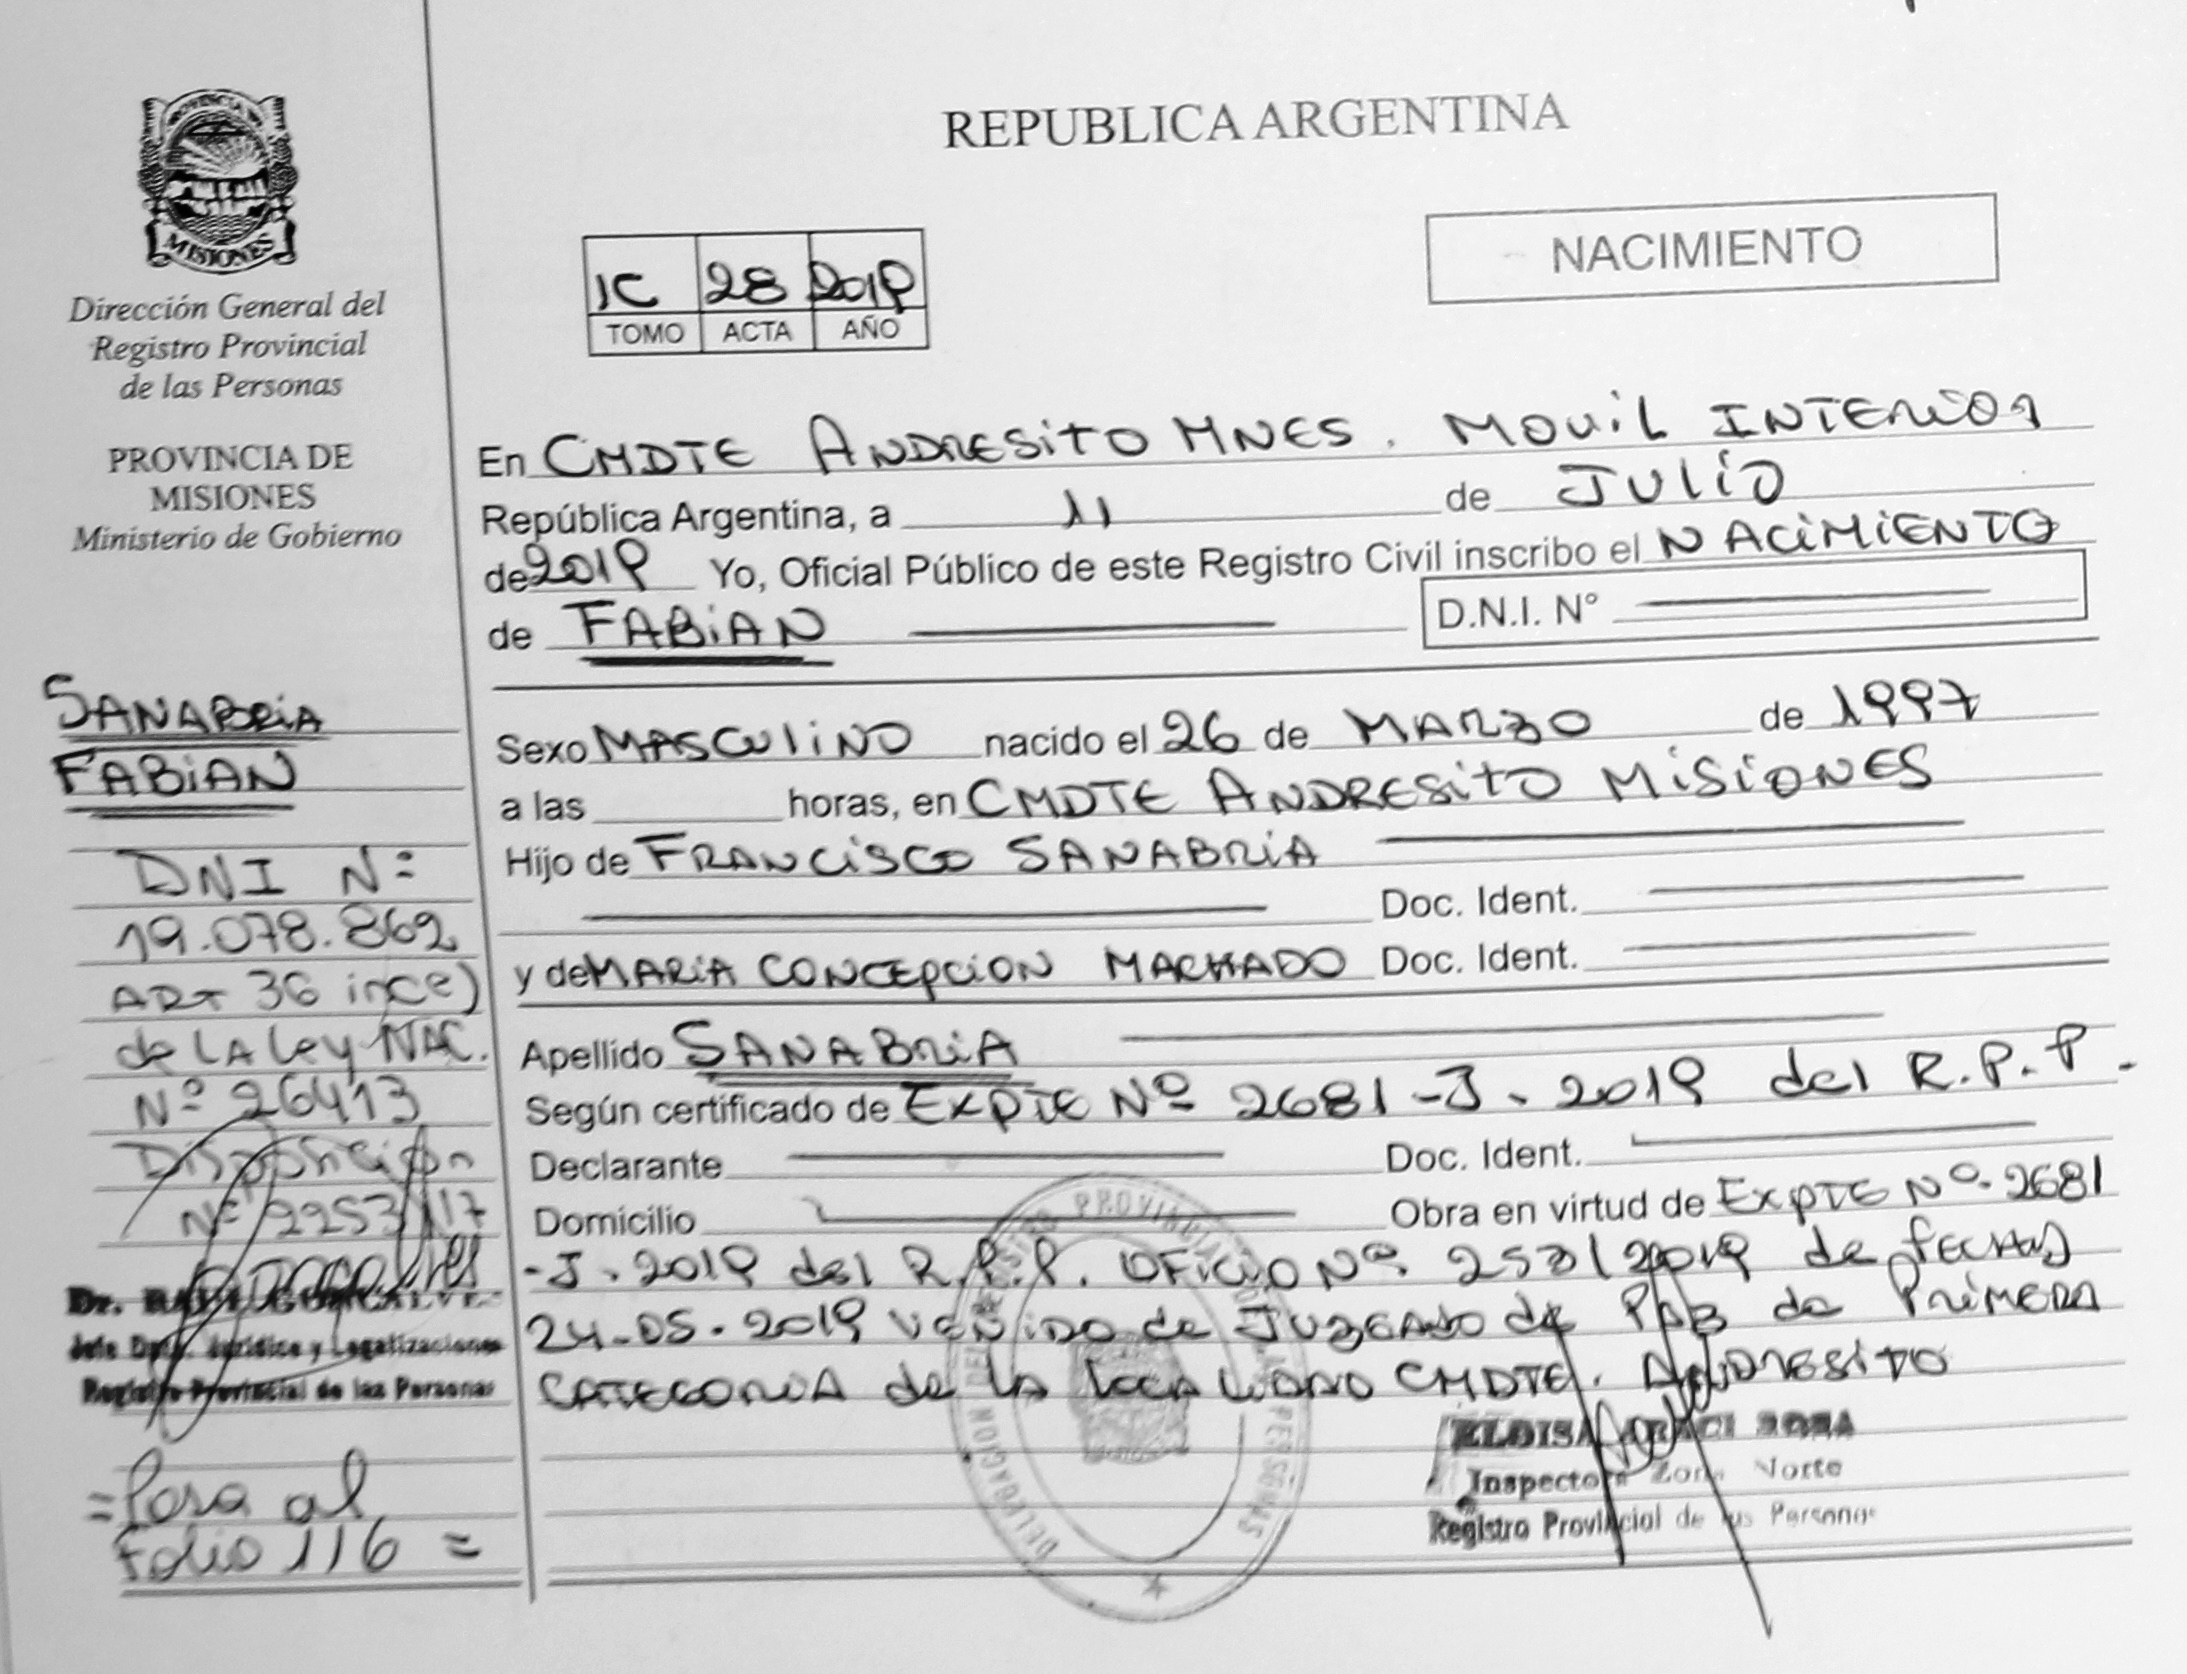 PROVINCIA DE
MISIONES
Dirección General del
Registro Provincial
de las Personas
PROVINCIA DE
MISIONES
Ministerio de Gobierno
SANABRIA
FABIAN
DNI Nº
19.078.862
ART 36 inc e)
de LA Ley NAC.
Nº 26413
Disposición
Nº 2253/17
Jefe Dpto. Jurídico y Legalizaciones
Registro Provincial de las Personas
= Pasa al
Folio 116 =
REPUBLICA ARGENTINA
NACIMIENTO
1C 28 2019
TOMO ACTA AÑO
En CMDTE ANDRESITO MNES. MOVIL INTERIOR
República Argentina, a 11 de JULIO
de 2019 Yo, Oficial Público de este Registro Civil inscribo el NACIMIENTO
de FABIAN D.N.I. N°
Sexo MASCULINO nacido el 26 de MARZO de 1997
a las horas, en CMDTE ANDRESITO MISIONES
Hijo de FRANCISCO SANABRIA
Doc. Ident.
y de MARIA CONCEPCION MACHADO Doc. Ident.
Apellido SANABRIA
Según certificado de EXPTE Nº 2681-J-2019 del R.P.P.
Declarante Doc. Ident.
Domicilio Obra en virtud de EXPTE Nº 2681
-J-2019 del R.P.P. OFICIO Nº 253/2019 de FECHA
24-05-2019 VENIDO de JUZGADO de PAZ de PRIMERA
CATEGORIA de LA LOCALIDAD CMDTE. ANDRESITO
ELOISA ARACI SOSA
Inspectora Zona Norte
Registro Provincial de las Personas